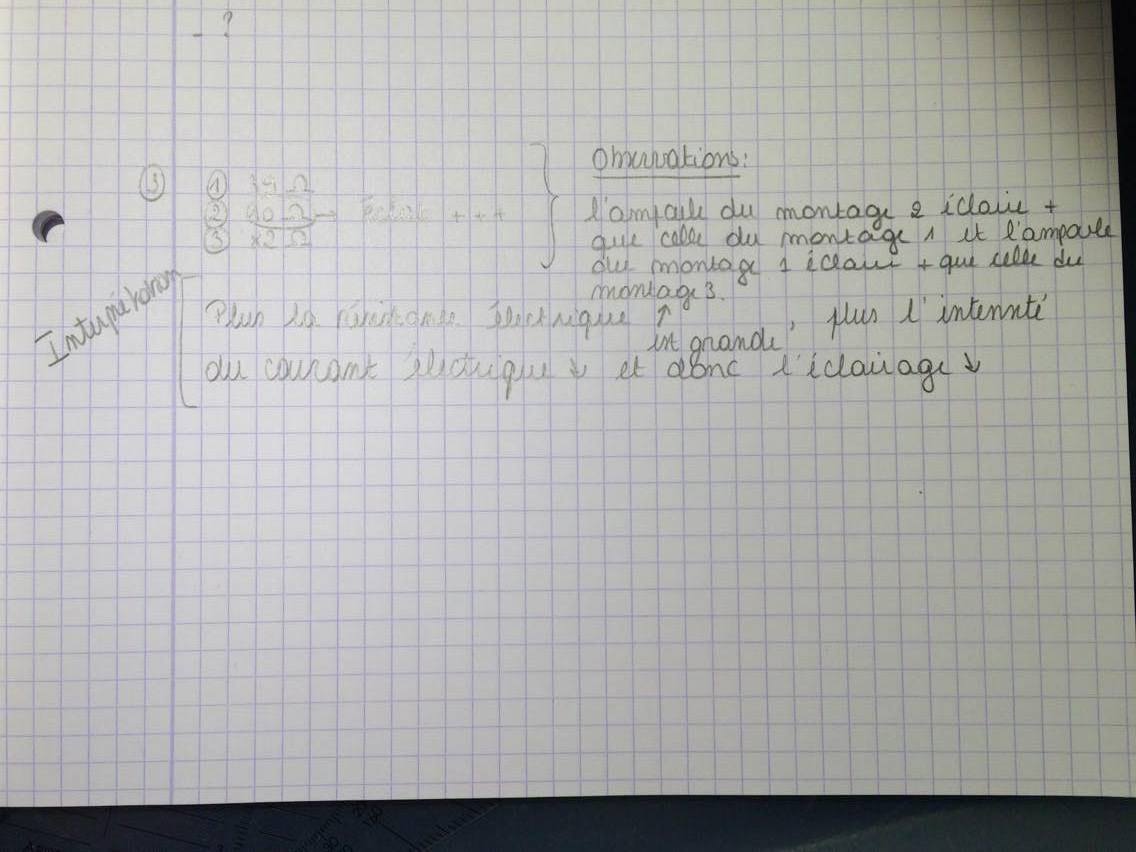 - ?
③
① Ω
② Ω → +++
③ Ω
Observations:
l'ampoule du montage 2 éclaire +
que celle du montage 1 et l'ampoule
du montage 1 éclaire + que celle du
montage 3.
Interprétation
Plus la résistance électrique ↑
est grande, plus l'intensité
du courant électrique ↓ et donc l'éclairage ↓